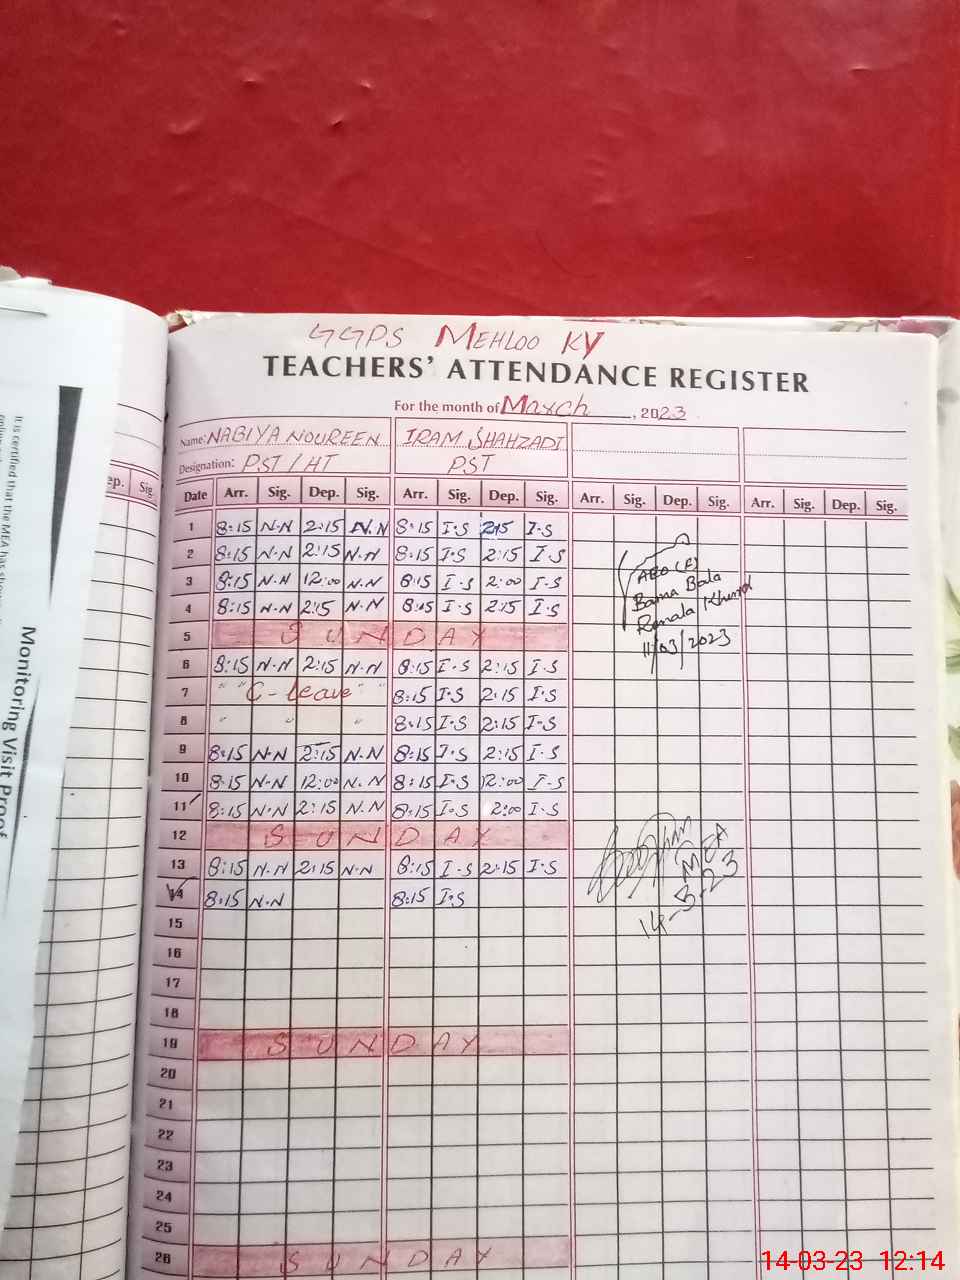 GGPS MEHLOO KY
TEACHERS' ATTENDANCE REGISTER
For the month of March, 2023
Name: NABIYA NOUREEN IRAM SHAHZADI
Designation: PST/HT PST
Date Arr. Sig. Dep. Sig. Arr. Sig. Dep. Sig. Arr. Sig. Dep. Sig. Arr. Sig. Dep. Sig.
1 8:15 N.N 2:15 N.N 8:15 I.S 2:15 I.S
2 8:15 N.N 2:15 N.N 8:15 I.S 2:15 I.S
3 8:15 N.N 12:00 N.N 8:15 I.S 2:00 I.S
4 8:15 N.N 2:15 N.N 8:15 I.S 2:15 I.S
5 SUNDAY
6 8:15 N.N 2:15 N.N 8:15 I.S 2:15 I.S
7 " " C-leave " " 8:15 I.S 2:15 I.S
8 " " " 8:15 I.S 2:15 I.S
9 8:15 N.N 2:15 N.N 8:15 I.S 2:15 I.S
10 8:15 N.N 12:00 N.N 8:15 I.S 12:00 I.S
11 8:15 N.N 2:15 N.N 8:15 I.S 2:00 I.S
12 SUNDAY
13 8:15 N.N 2:15 N.N 8:15 I.S 2:15 I.S
14 8:15 N.N 8:15 I.S
15
16
17
18
19 SUNDAY
20
21
22
23
24
25
26 SUNDAY
AEO (F)
Bama Bala
Renala Khurd
11/03/2023
MEA
14-3-23
ep. Sig.
It is certified that the MEA has
Monitoring Visit Proof
14-03-23 12:14